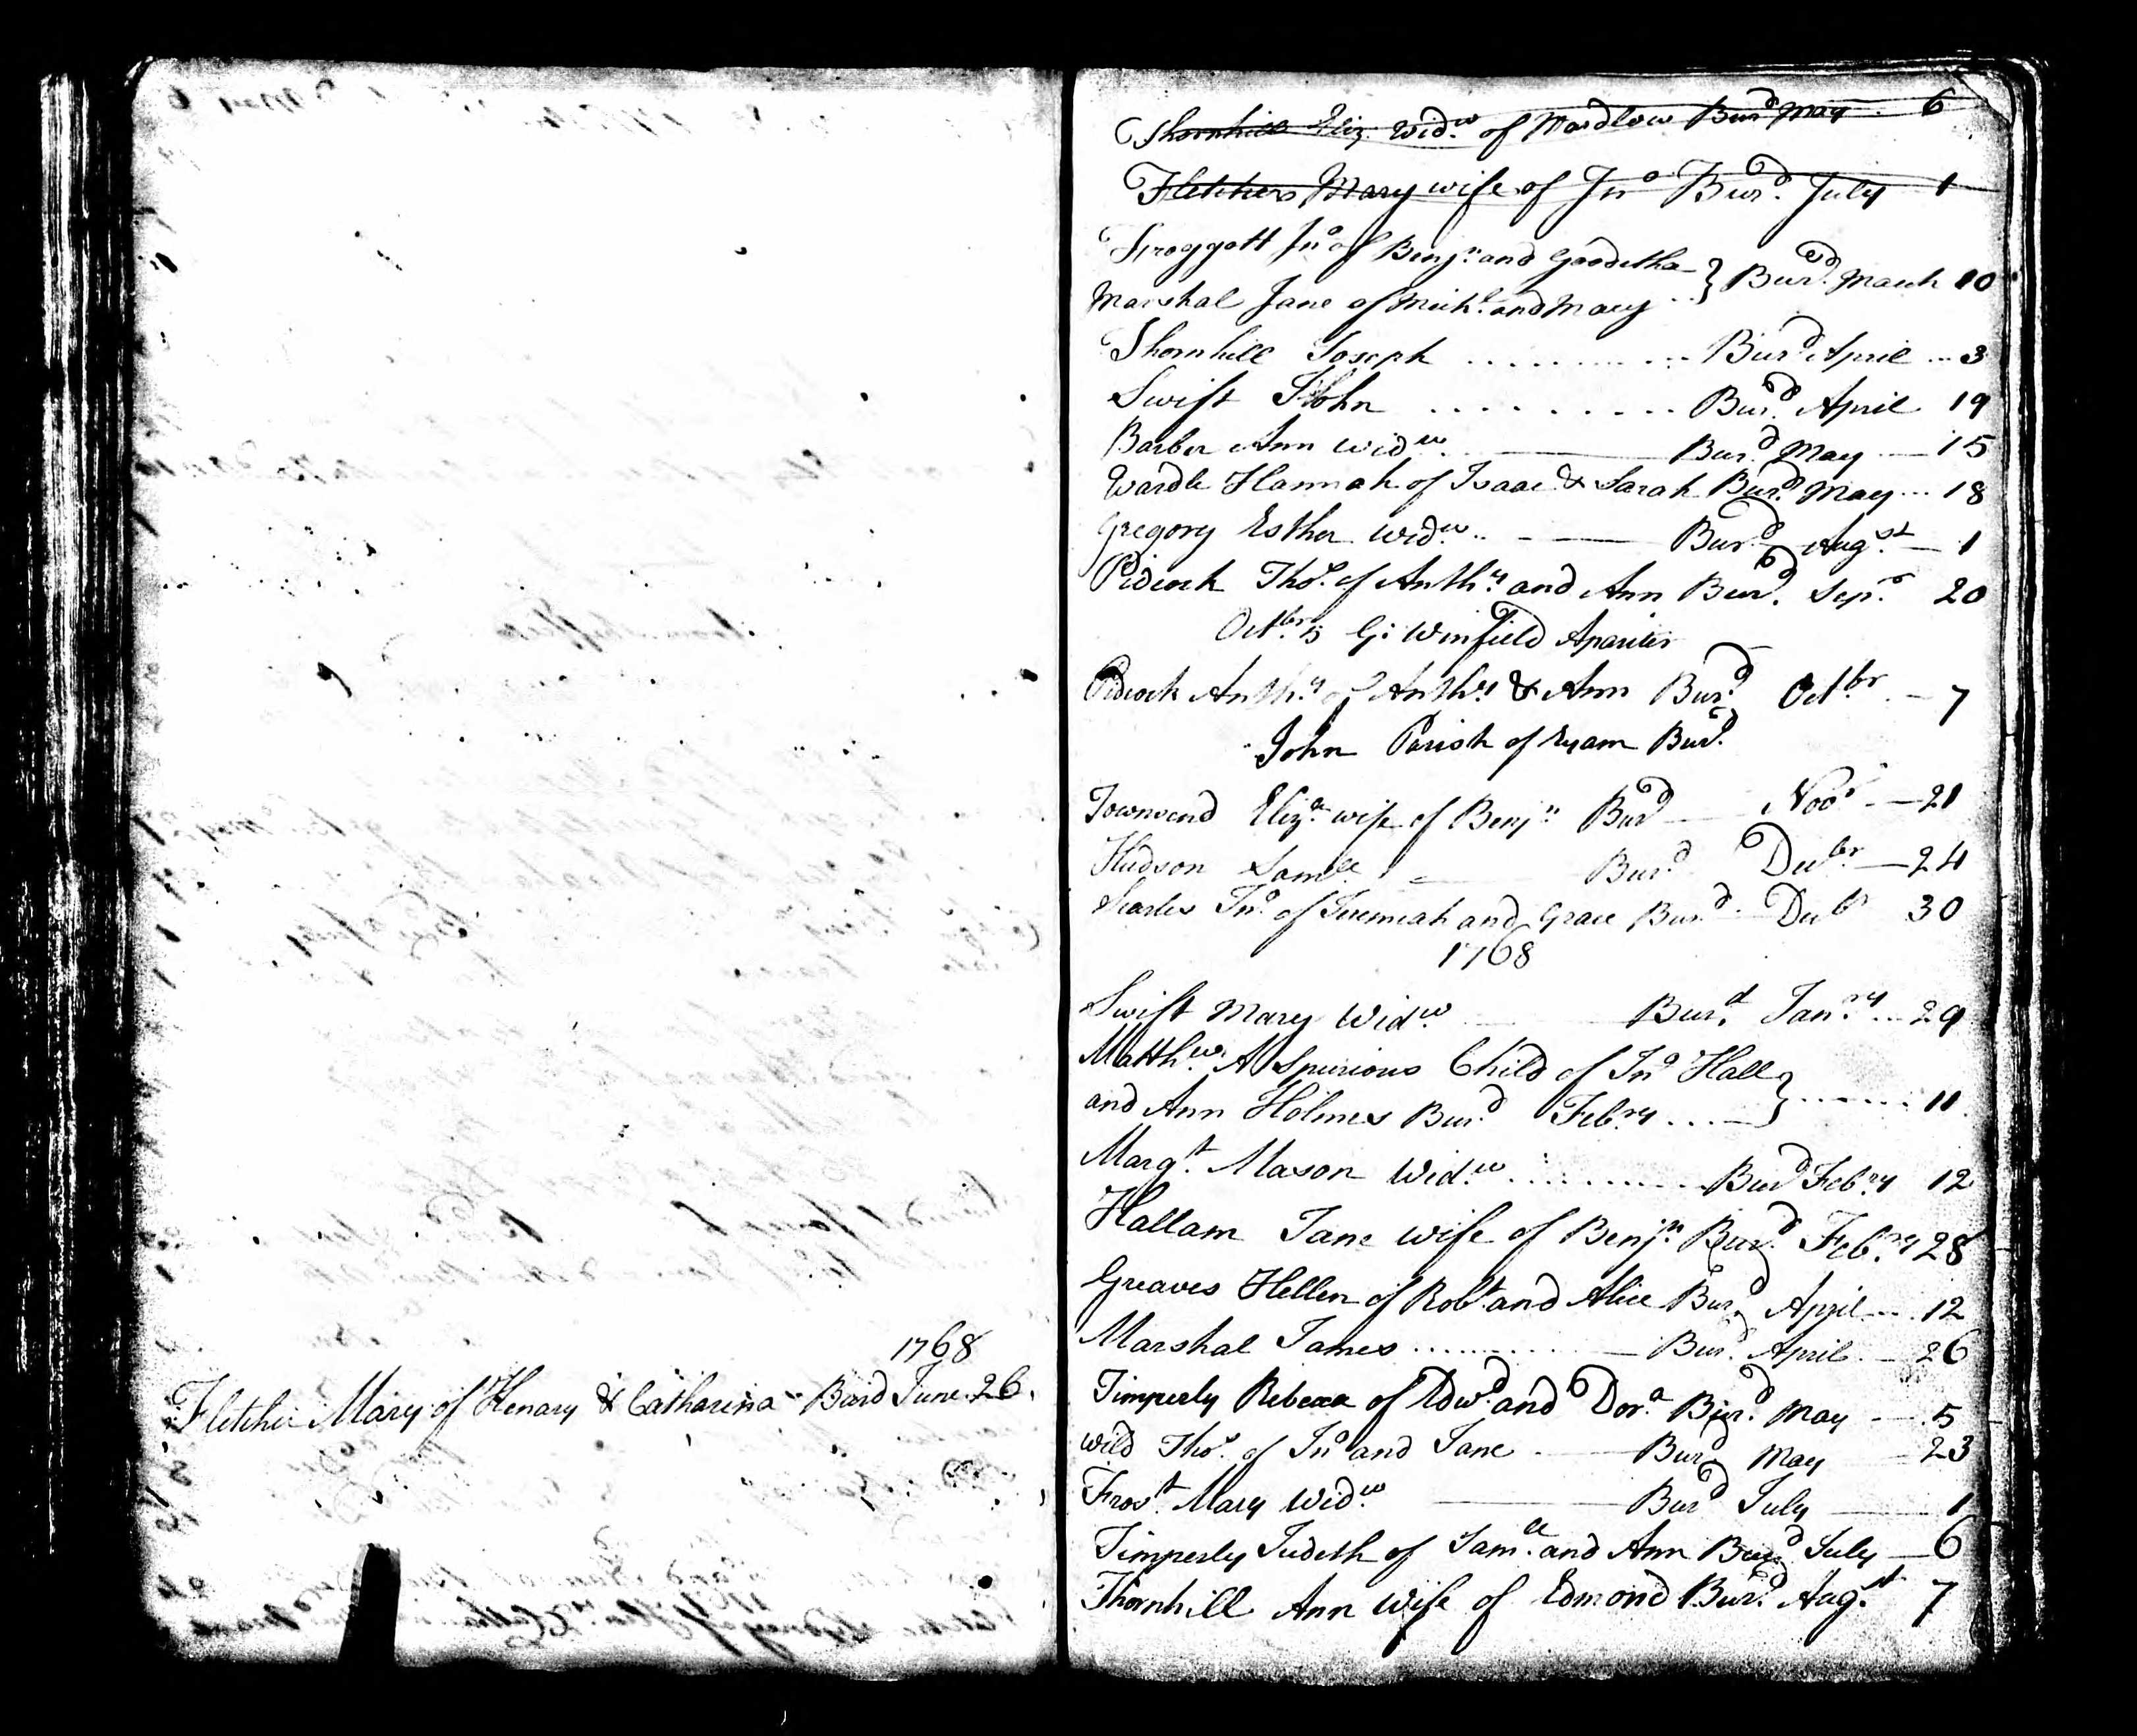 1768
Fletcher Mary of Henary & Catharina Burd June 26
Thornhill Eliz. Widw. of Wardlow Burd May 6
Fletcher Mary wife of Jno Burd. July 1
Froggott Jno of Benjn. and Goodetha } Burd. March 10
Marshal Jane of Michl. and Mary
Thornhill Joseph .......... Burd April ... 3
Swift John ......... Burd. April 19
Barber Ann Widw. Burd. May 15
Wardle Hannah of Isaac & Sarah Burd. May ... 18
Gregory Esther Widw. Burd. Augst. 1
Pidcock Thos. of Anthy. and Ann Burd. Sepr. 20
Octbr. 5 G: Winfield Apariter
Pidcock Anthy. of Anthy. & Ann Burd. Octbr. 7
John Parish of Eyam Burd.
Townsend Eliza. wife of Benjn. Burd Novr. 21
Hudson Samll. Burd. Decbr. 24
Searles Jno. of Jeremiah and Grace Burd. Decbr 30
1768
Swift Mary Widw. Burd. Janry. 29
Matthw. A Spurious Child of Jno Hall } ...... 11
and Ann Holmes Burd. Febry ....
Margt. Mason Widw. .......... Burd Febry 12
Hallam Jane wife of Benjn. Burd. Febry. 28
Greaves Hellen of Robt. and Alice Burd. April ... 12
Marshal James .......... Burd. April 26
Timperly Rebecca of Edwd. and Dora. Burd. May 5
Wild Thos. of Jno and Jane Burd. May 23
Frost Mary Widw. Burd July 1
Timperly Judeth of Samll. and Ann Burd July 6
Thornhill Ann Wife of Edmond Burd. Augst. 7